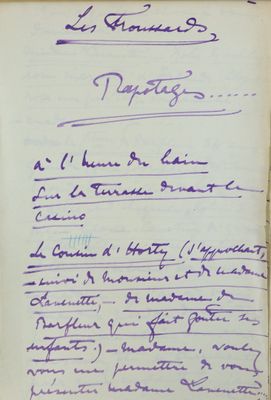 Les Froussards
Papotages......
à l'heure du bain
sur la terrasse devant le
casino
Le Cousin d'Horty (s'approchant,
suivi de monsieur et de madame
Lanenette, - de madame de
Barfleur qui fait goûter ses
enfants.) - madame, voulez
vous me permettre de vous
présenter madame Lanenette...